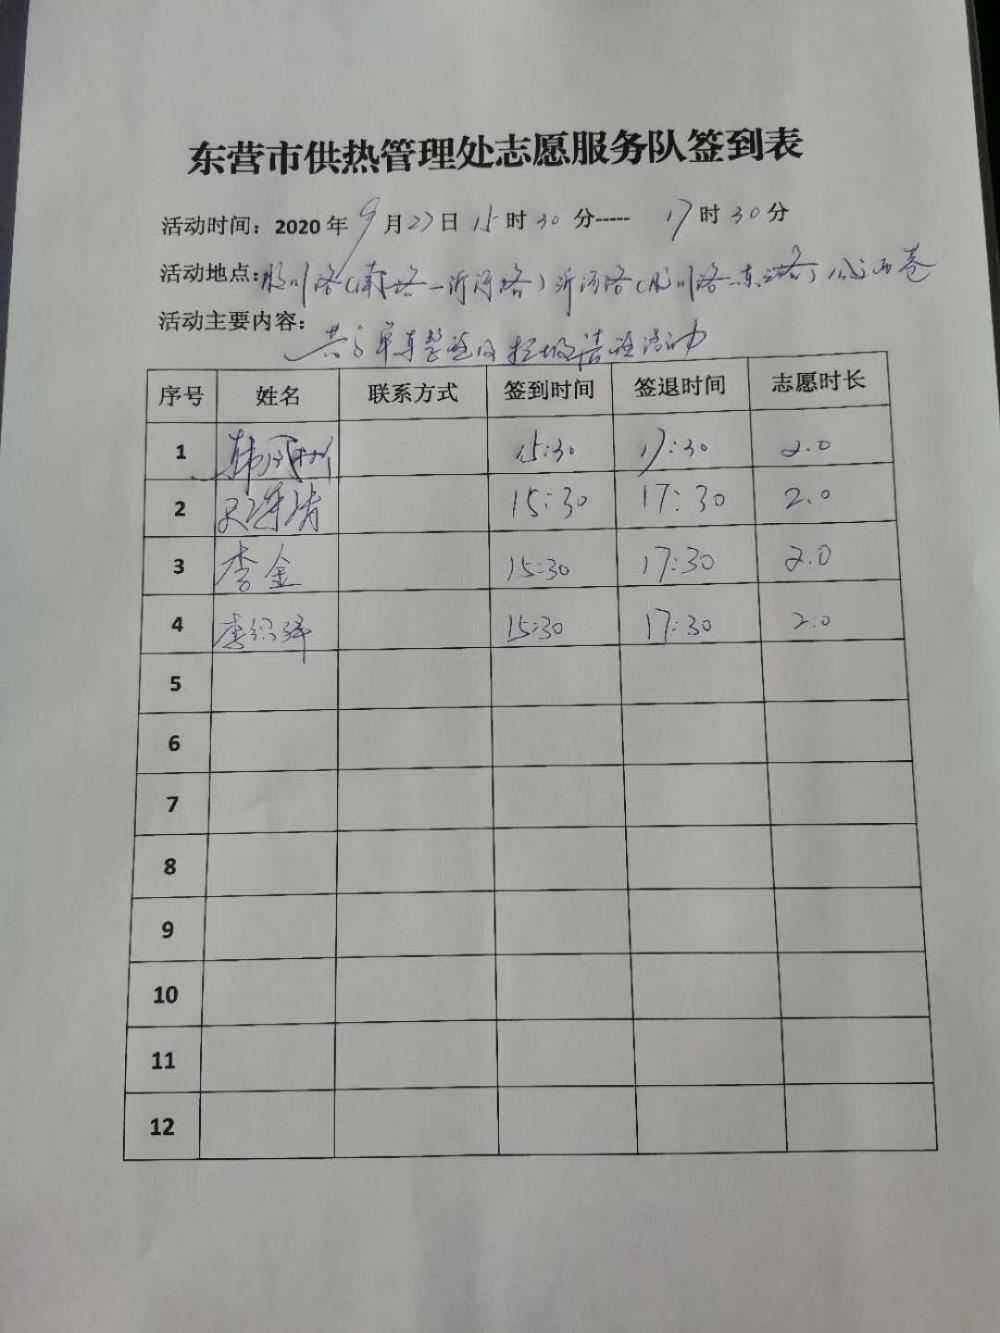 东营市供热管理处志愿服务队签到表
活动时间：2020年9月27日15时30分----- 17时30分
活动地点：胶州路(南 路—沂河路)沂河路(胶州路—东 路)
活动主要内容：
共享单车整理及垃圾清理活动
序号 姓名 联系方式 签到时间 签退时间 志愿时长
1 韩 15:30 17:30 2.0
2 15:30 17:30 2.0
3 李金 15:30 17:30 2.0
4 李 15:30 17:30 2.0
5
6
7
8
9
10
11
12